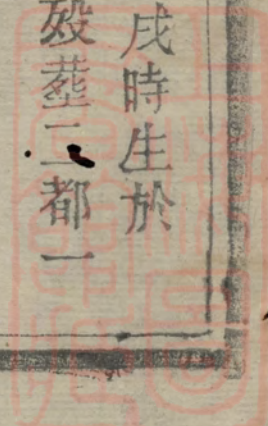 戌時生於
歿葬二都一